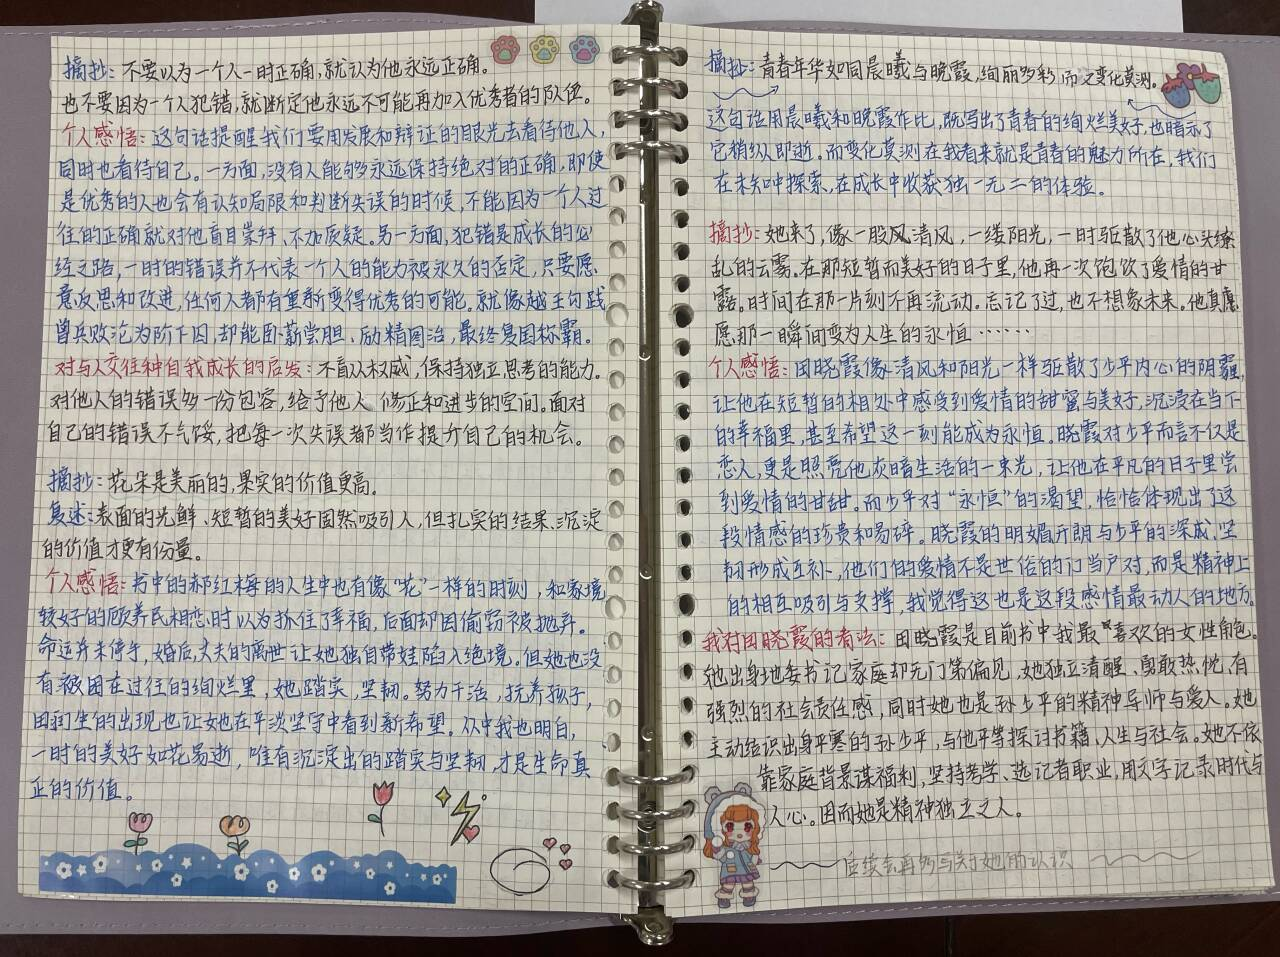 摘抄：不要以为一个人一时正确，就认为他永远正确。
也不要因为一个人犯错，就断定他永远不可能再加入优秀者的队伍。
个人感悟：这句话提醒我们要用发展和辩证的眼光去看待他人，
同时也看待自己。一方面，没有人能够永远保持绝对的正确，即使
是优秀的人也会有认知局限和判断失误的时候，不能因为一个人过
往的正确就对他盲目崇拜、不加质疑。另一方面，犯错是成长的必
经之路，一时的错误并不代表一个人的能力被永久的否定，只要愿
意反思和改进，任何人都有重新变得优秀的可能。就像越王勾践
曾兵败沦为阶下囚，却能卧薪尝胆、励精图治，最终复国称霸。
对与人交往种自我成长的启发：不盲从权威，保持独立思考的能力。
对他人的错误多一份包容，给予他人修正和进步的空间。面对
自己的错误不气馁，把每一次失误都当作提升自己的机会。
摘抄：花朵是美丽的，果实的价值更高。
复述：表面的光鲜、短暂的美好固然吸引人，但扎实的结果、沉淀
的价值才更有份量。
个人感悟：书中的郝红梅的人生中也有像“花”一样的时刻，和家境
较好的顾养民相恋时以为抓住了幸福，后面却因偷窃被抛弃。
命运并未停手，婚后，丈夫的离世让她独自带娃陷入绝境。但她也没
有被困在过往的绚烂里，她踏实，坚韧。努力干活，抚养孩子，
田润生的出现也让她在平淡坚守中看到新希望。从中我也明白，
一时的美好如花易逝，唯有沉淀出的踏实与坚韧，才是生命真
正的价值。
摘抄：青春年华如同晨曦与晚霞，绚丽多彩，而又变化莫测。
这句话用晨曦和晚霞作比，既写出了青春的绚烂美好，也暗示了
它稍纵即逝。而变化莫测在我看来就是青春的魅力所在，我们
在未知中探索，在成长中收获独一无二的体验。
摘抄：她来了，像一股风清风，一缕阳光，一时驱散了他心头缭
乱的云雾。在那短暂而美好的日子里，他再一次饱饮了爱情的甘
露。时间在那一片刻不再流动。忘记了过，也不想象未来。他真愿
愿那一瞬间变为人生的永恒……
个人感悟：田晓霞像清风和阳光一样驱散了少平内心的阴霾，
让他在短暂的相处中感受到爱情的甜蜜与美好，沉浸在当下
的幸福里，甚至希望这一刻能成为永恒。晓霞对少平而言不仅是
恋人，更是照亮他灰暗生活的一束光，让他在平凡的日子里尝
到爱情的甘甜。而少平对“永恒”的渴望，恰恰体现出了这
段情感的珍贵和易碎。晓霞的明媚开朗与少平的深成、坚
韧形成互补，他们们的爱情不是世俗的门当户对，而是精神上
的相互吸引与支撑，我觉得这也是这段感情最动人的地方。
我对田晓霞的看法：田晓霞是目前书中我最喜欢的女性角色。
她出身地委书记家庭却无门第偏见，她独立清醒、勇敢热忱、有
强烈的社会责任感，同时她也是孙少平的精神导师与爱人。她
主动结识出身平寒的孙少平，与他平等探讨书籍、人生与社会。她不依
靠家庭背景谋福利，坚持考学、选记者职业，用文字记录时代与
人心。因而她是精神独立之人。
后续会再多写关于她的认识